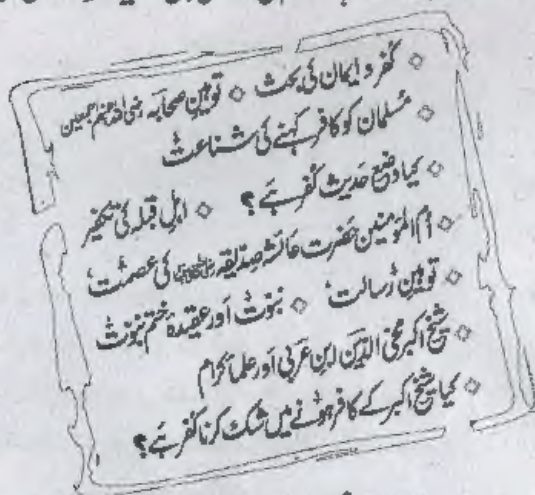 ◇ کفر و ایمان کی بحث ◇ توہینِ صحابہ رضی اللہ عنہم اجمعین
◇ مسلمان کو کافر کہنے کی شناعت
◇ کیا وضعِ حدیث کفر ہے ؟ ◇ اہلِ قبلہ کی تکفیر
◇ ام المؤمنین حضرت عائشہ صدیقہ رضی اللہ عنہا کی عصمت
◇ توہینِ رسالت ◇ نبوت اور عقیدۂ ختمِ نبوت
◇ شیخ اکبر محی الدین ابن عربی اور علماء کرام
◇ کیا شیخ اکبر کے کافر ہونے میں شک کرنا کفر ہے ؟